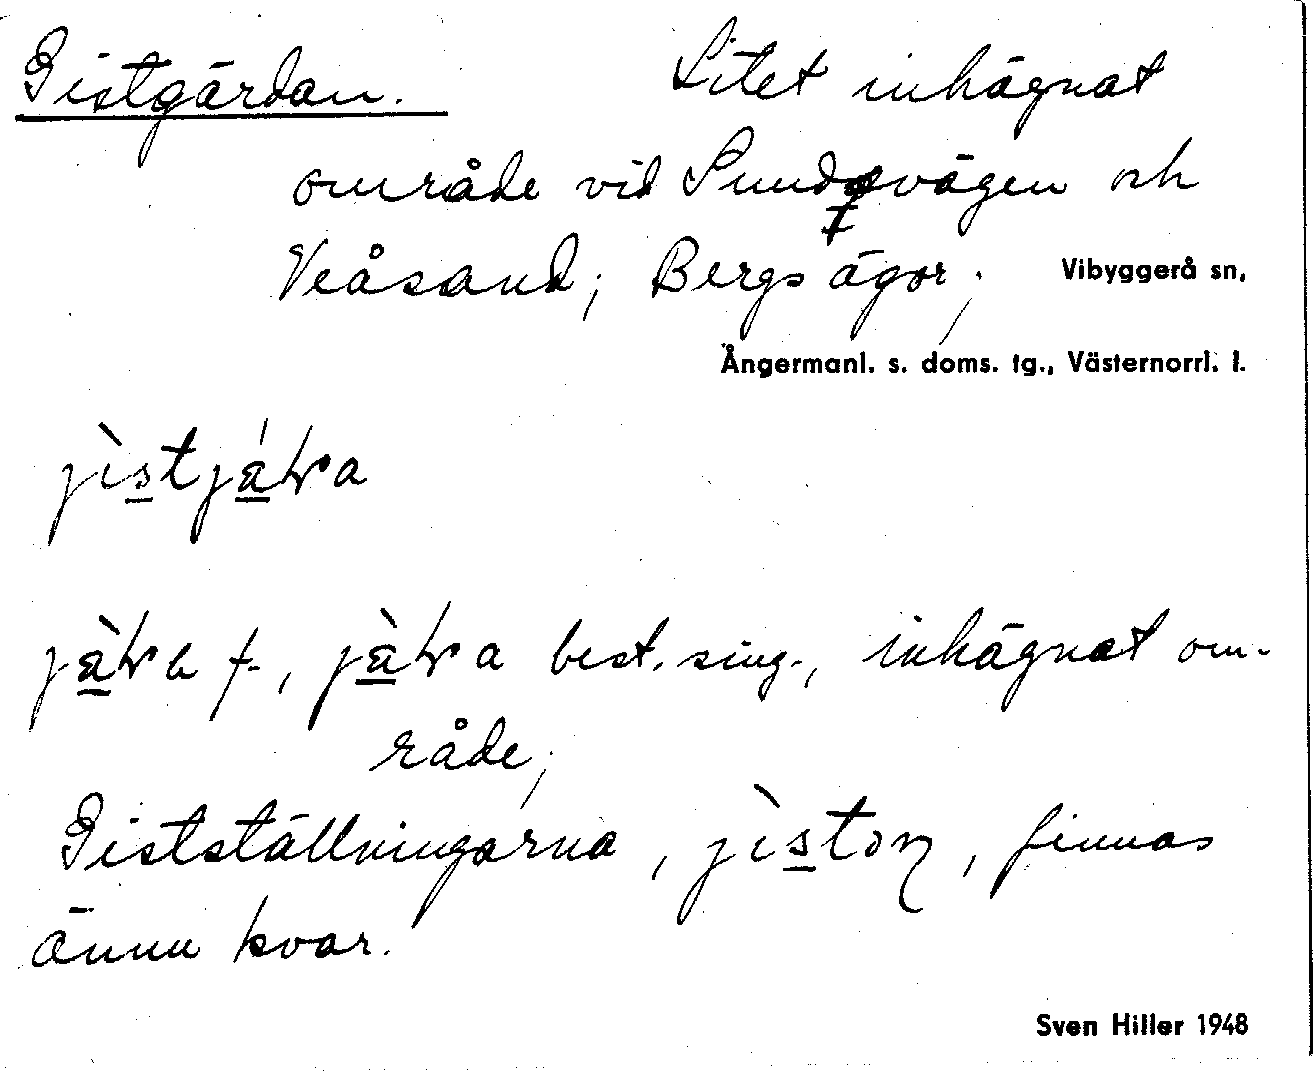 Gistgärdan. Litet inhägnat
område vid Sundsvägen och
Veåsand; Bergs ägor; Vibyggerå sn,
Ångermanl. s. doms. tg., Västernorrl. l.
best. sing., inhägnat om-
råde;
Gistställningarna, finnas
ännu kvar.
Sven Hiller 1948